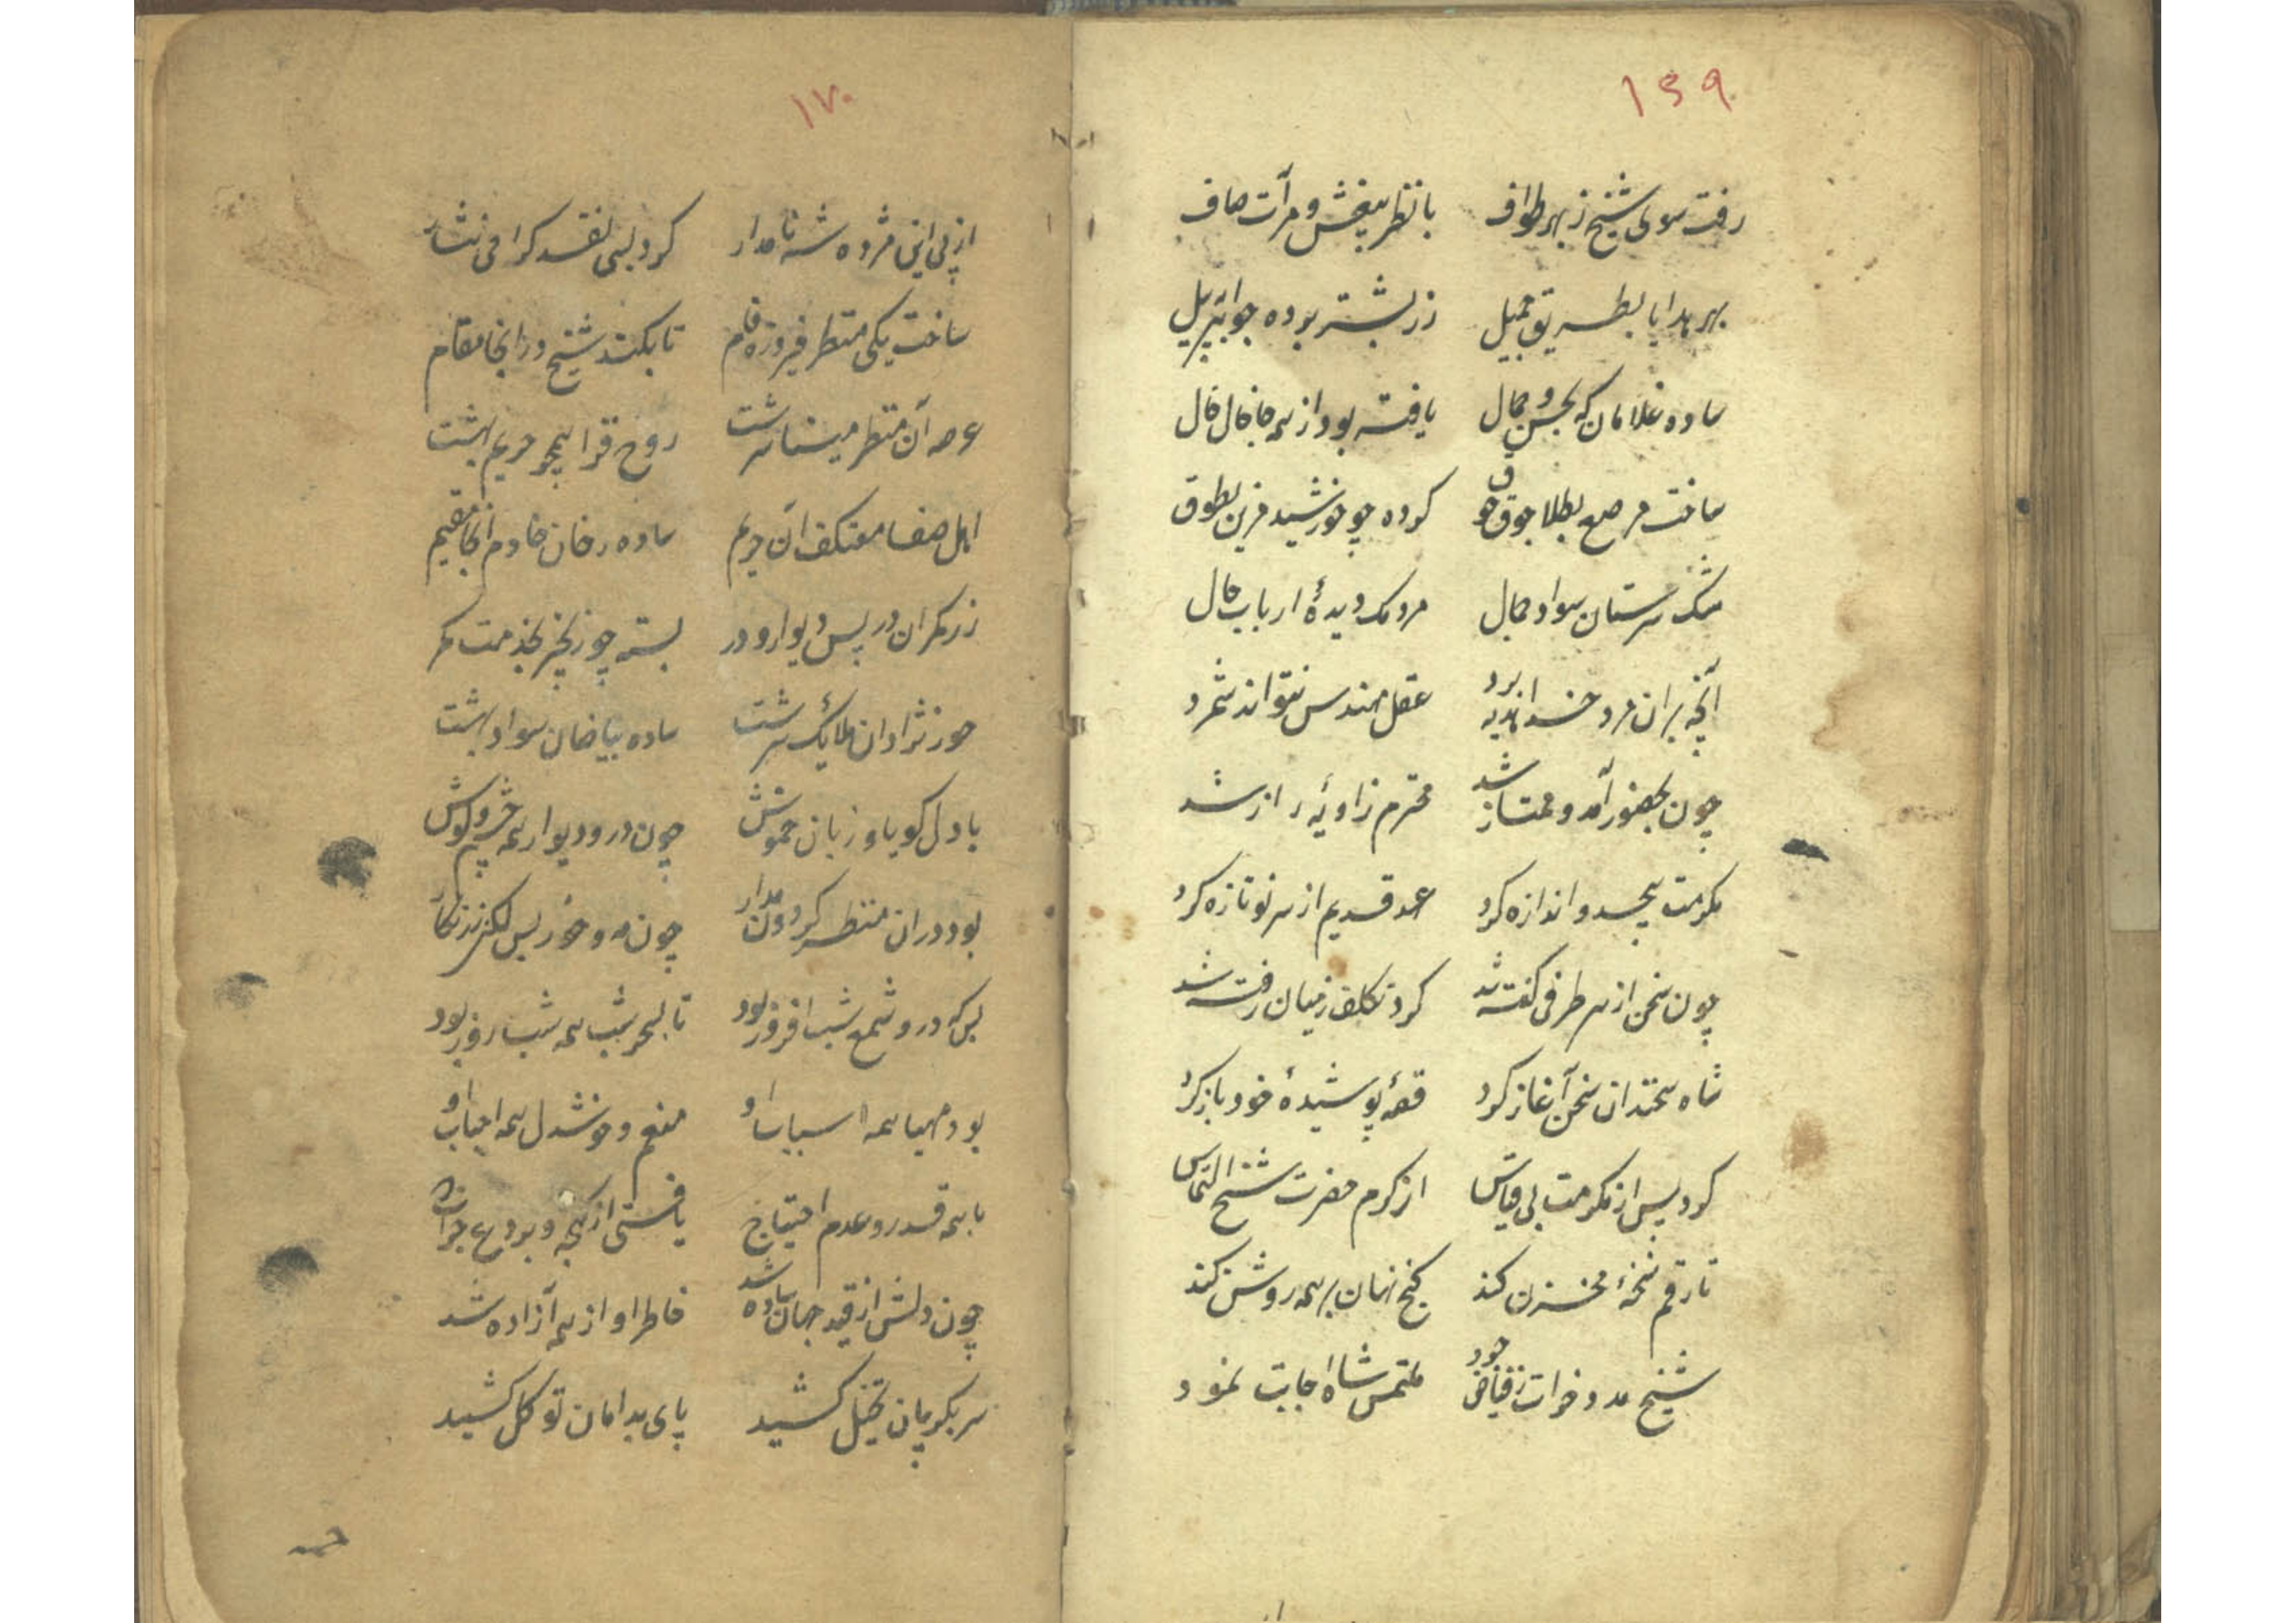 ۱۶۹
رفت سوی شیخ ز بهر طواف با نظر بیغش و مرآت صاف
بهر هدایا بطریق جمیل زر بشتر بوده جواهر بپیل
ساده غلامان که بحسن و جمال یافته بود از همه جا خال خال
ساخت مرصع بطلا جوق جوق کرده چو خورشید مزین بطوق
مشک سرستان سواد جمال مردمک دیدهٔ ارباب حال
آنچه بران مرد خدا هدیه برد عقل مهندس نتواند شمرد
چون بحضور آمد و ممتاز شد محترم زاویهٔ راز شد
مکرمت بیحد و اندازه کرد عهد قدیم از سر نو تازه کرد
چون سخن از هر طرفی گفته شد گرد تکلف ز میان رفته شد
شاه سخندان سخن آغاز کرد قصهٔ پوشیدهٔ خود باز کرد
کرد پس از مکرمت بی قیاس از کرم حضرت شیخ التماس
تا رقم نسخهٔ مخزن کند گنج نهان بر همه روشن کند
شیخ مدد خواست ز فیاض جود ملتمس شاه اجابت نمود
۱۷۰
از پی این مژده شه نامدار کرد بسی نقد گرامی نثار
ساخت یکی منظر فیروزه فام تا بکند شیخ در انجا مقام
عرصه آن منظر مینا سرشت روح فزا همچو حریم بهشت
اهل صفا معتکف آن حریم ساده رخان خادم انجا مقیم
زر کمران در پس دیوار و در بسته چو زنجیر بخدمت کمر
حور نژادان ملائک سرشت ساده بیاضان سواد بهشت
با دل گویا و زبان خموش چون در و دیوار همه چشم و گوش
بود دران منظر گردون مدار چون مه و خور بس لگن زرنگار
بس که درو شمع شب افروز بود تا بسحر شب همه شب روز بود
بود مهیا همه اسباب او منعم و خوشدل همه احباب او
با همه قدر و عدم احتیاج یافتی از گنجه و بردع خراج
چون دلش از قید جهان ساده شد خاطر او از همه آزاده شد
سر بگریبان تخیل کشید پای بدامان توکل کشید